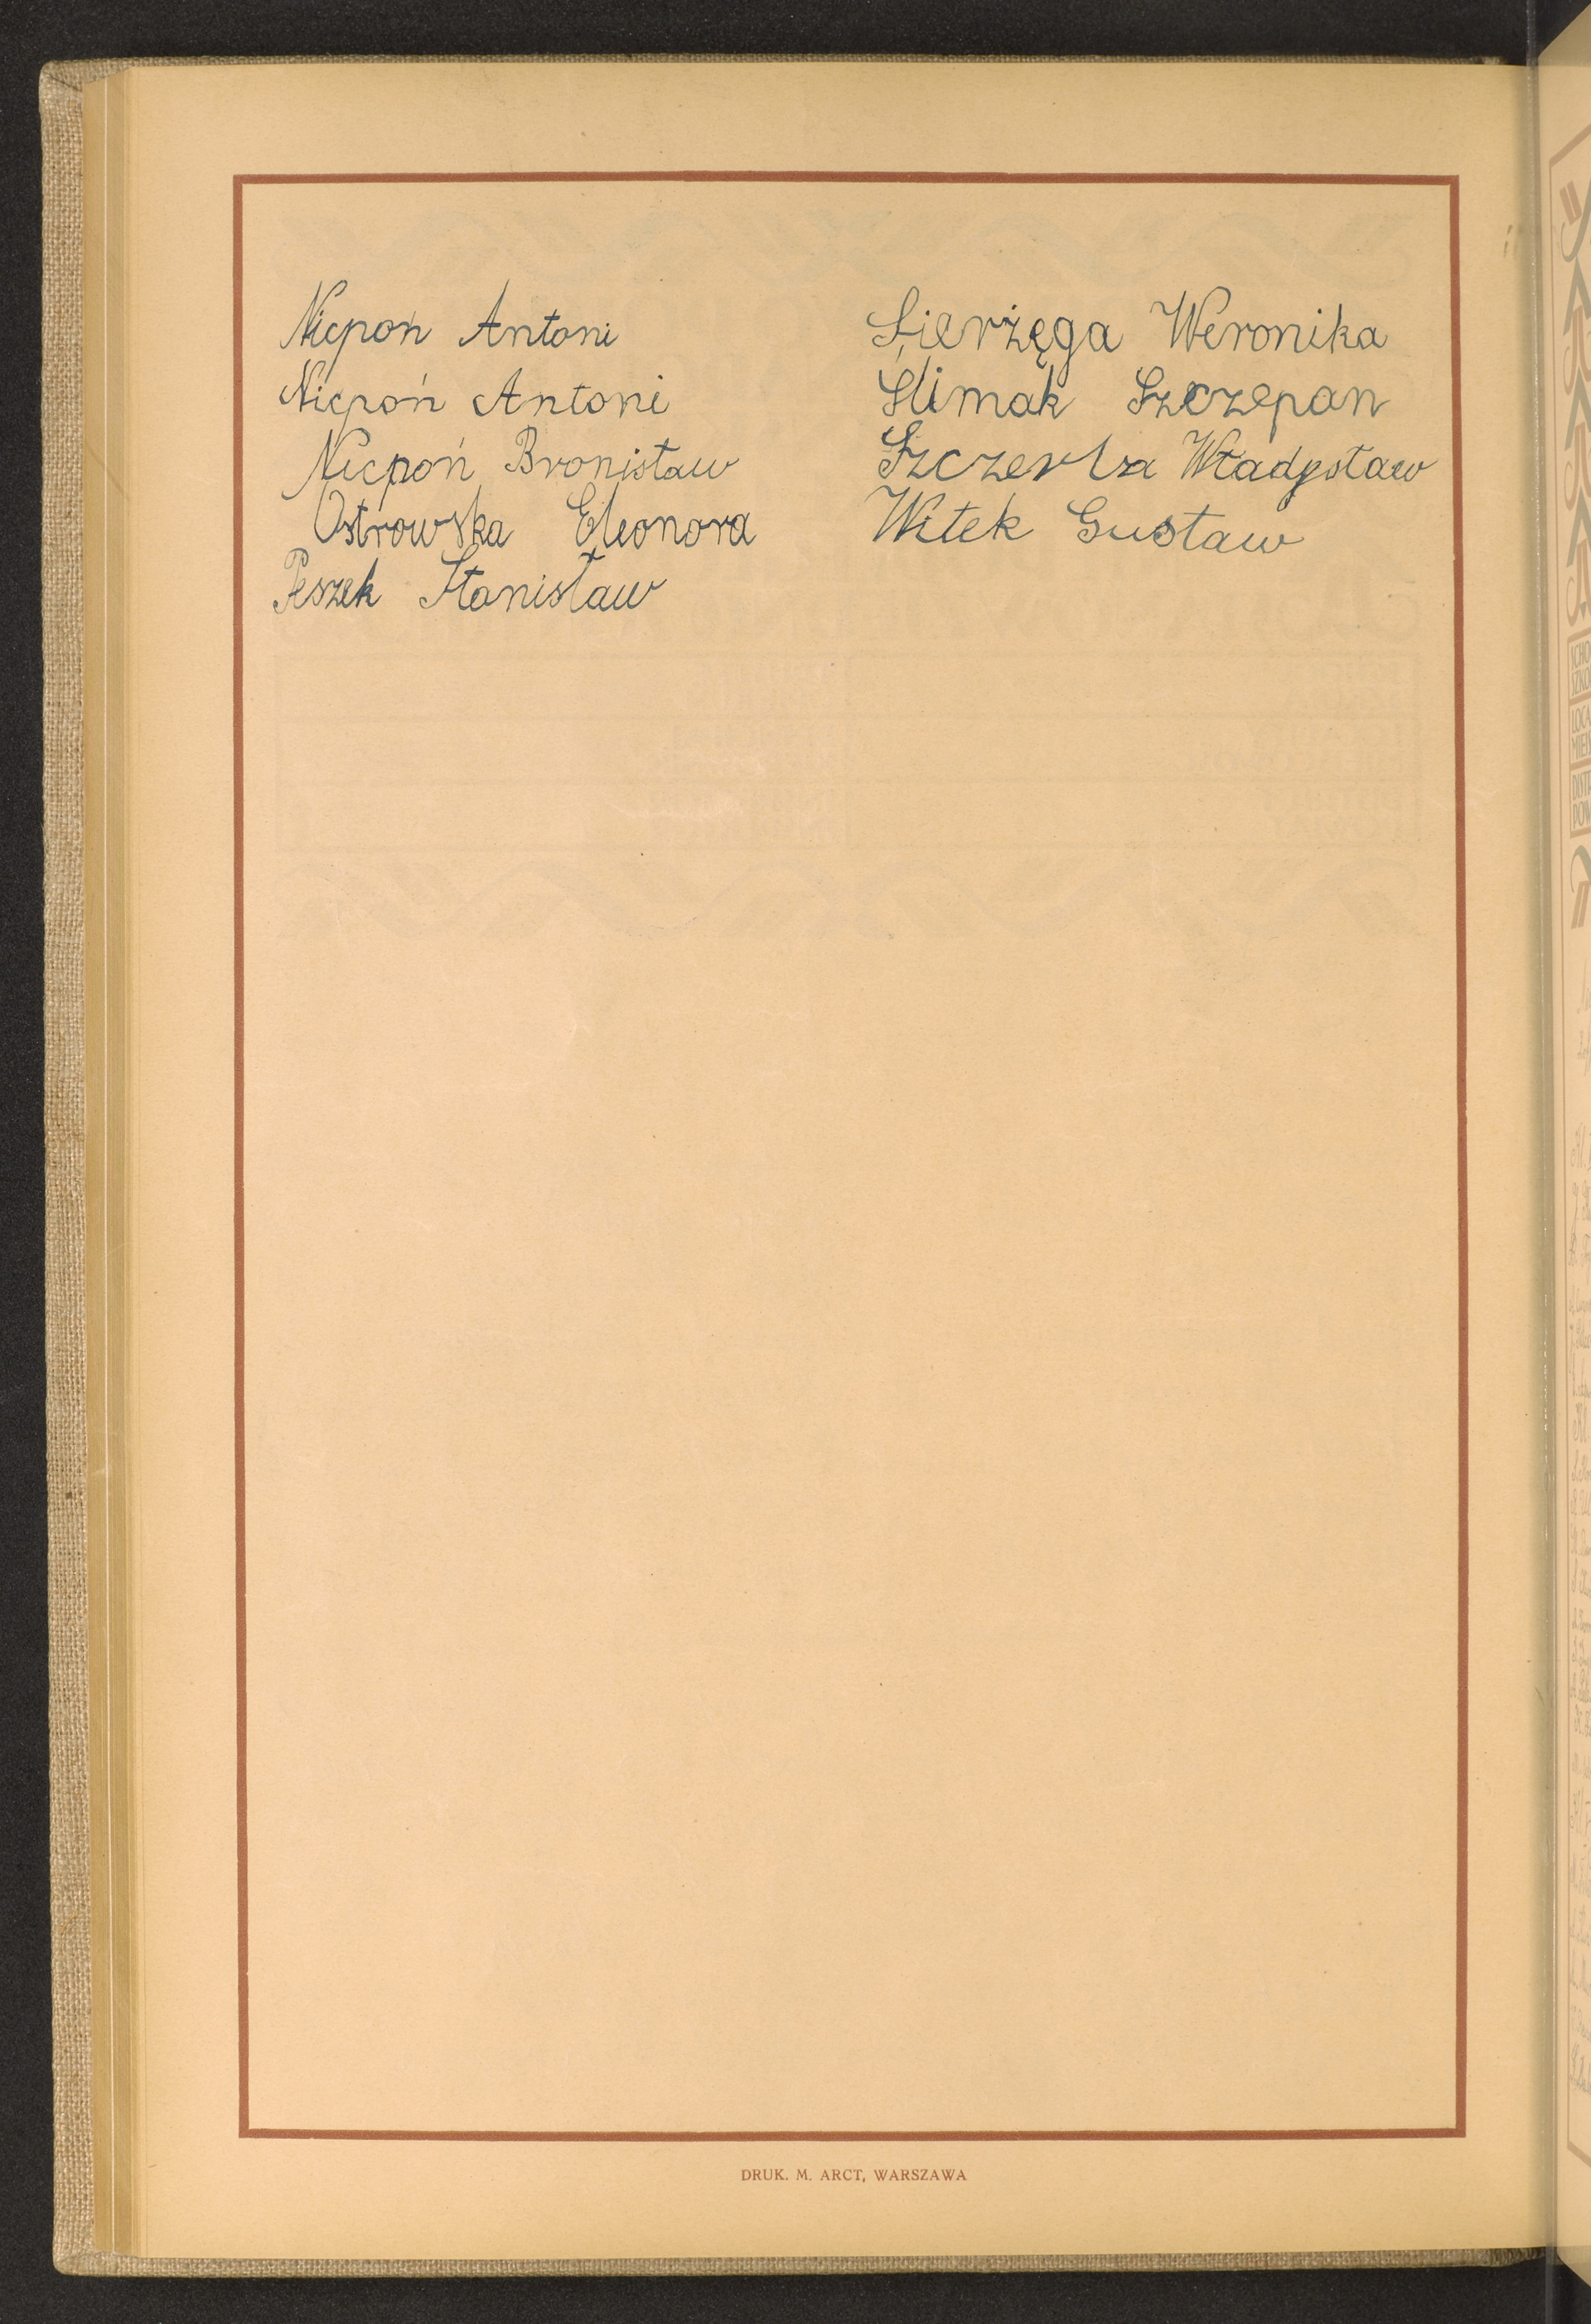 Nicpoń Antoni
Nicpoń Antoni
Nicpoń Bronisław
Ostrowska Eleonora
Peszek Stanisław
Sierżęga Weronika
Ślimak Szczepan
Szczerba Władysław
Witek Gustaw
DRUK. M. ARCT, WARSZAWA